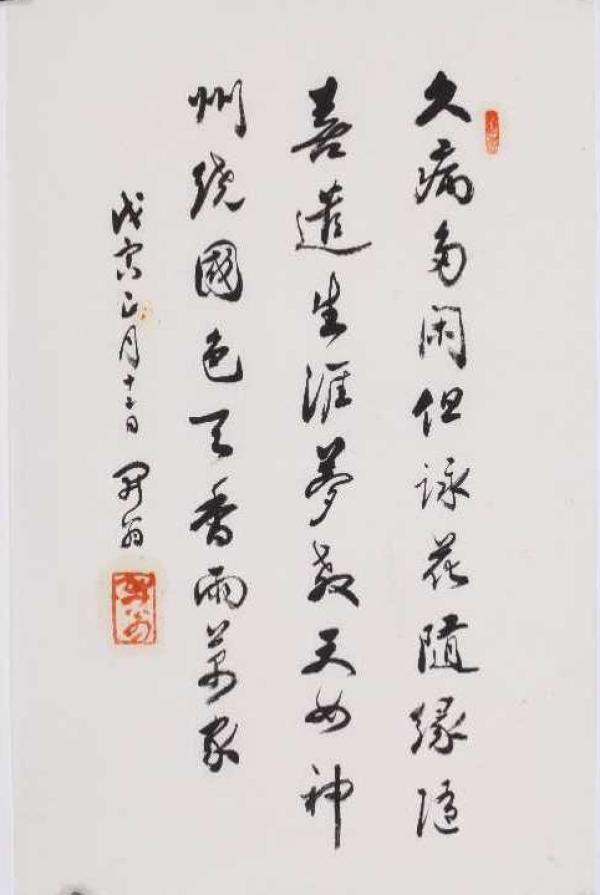 久病多閑但詠花隨緣隨
喜遣生涯夢教天女神
州繞國色天香雨萬家
戊寅正月十二日 翁